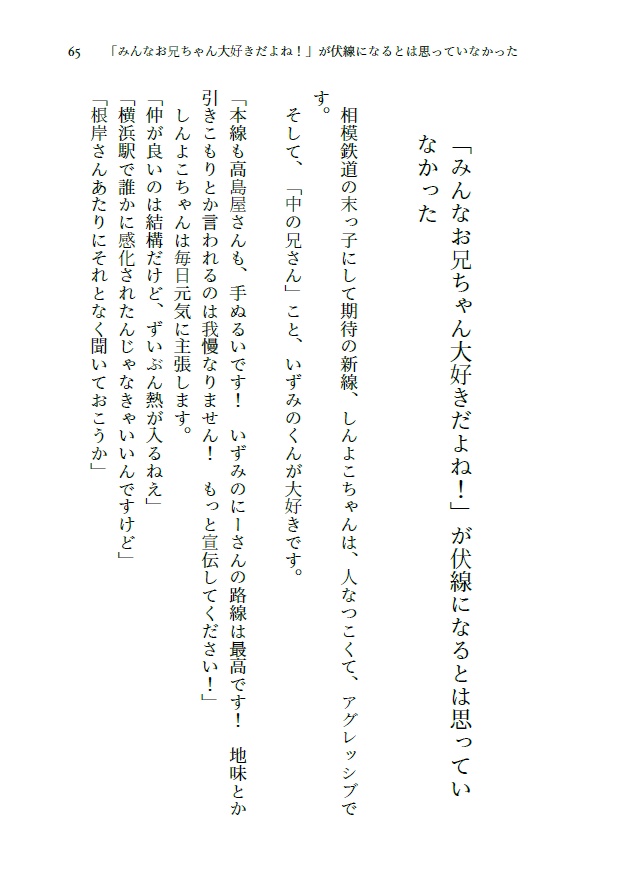 65 「みんなお兄ちゃん大好きだよね！」が伏線になるとは思っていなかった
「みんなお兄ちゃん大好きだよね！」が伏線になるとは思ってい
なかった
相模鉄道の末っ子にして期待の新線、しんよこちゃんは、人なつこくて、アグレッシブで
す。
そして、「中の兄さん」こと、いずみのくんが大好きです。
「本線も高島屋さんも、手ぬるいです！　いずみのにーさんの路線は最高です！　地味とか
引きこもりとか言われるのは我慢なりません！　もっと宣伝してください！」
しんよこちゃんは毎日元気に主張します。
「仲が良いのは結構だけど、ずいぶん熱が入るねえ」
「横浜駅で誰かに感化されたんじゃなきゃいいんですけど」
「根岸さんあたりにそれとなく聞いておこうか」